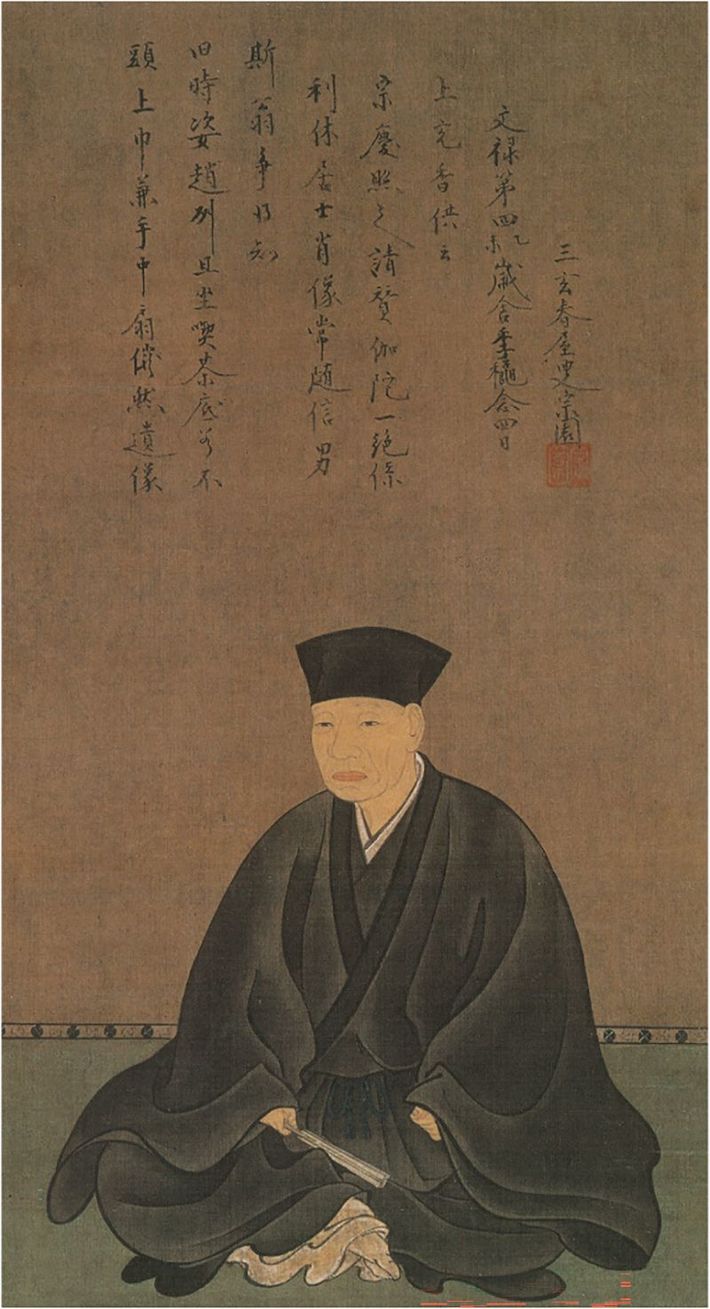 頭上巾兼手中扇儼然遺像
旧時姿趙州且坐喫茶底若不
斯翁争得知
利休居士肖像常随信男
宗慶照之請賛伽陀一絶係
上充香供云
文禄第四乙未歳舍季穐念四日
三玄春屋叟宗園